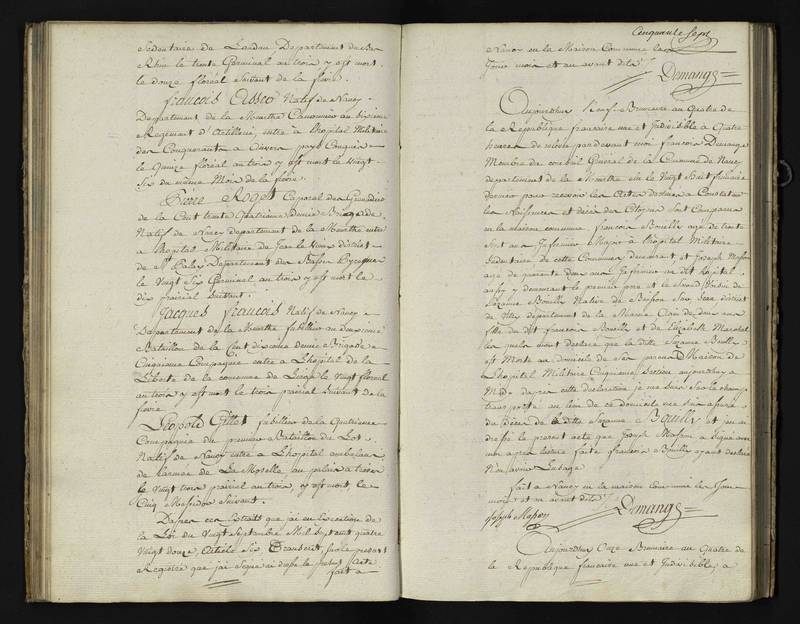 Sedentaire de Landau, Departement du Bas
Rhin le trente Germinal an trois y est mort
le douze floréal suivant de la fievre.
françois natif de Nancy
Departement de la Meurthe Canonnier au sixieme
Regiment d'Artillerie, entré a Lhopital Militaire
des pays Conquis
le quinze floréal an trois y est mort le vingt
Six du même Mois de la fievre.
Pierre Caporal des Grenadiers
de la Cent trente quatrieme demie Brigade
Natif de Nancy departement de la Meurthe entré
a Lhopital Militaire de district
de St Palais Departement des Basses Pyrenées
le vingt Six Germinal an trois y est mort le
dix prairial suivant.
Jacques françois Natif de Nancy
Departement de la Meurthe fusillier au deuxieme
Bataillon de la Cent dixieme Demie Brigade
Cinquieme Compagnie entré a Lhopital de la
Liberté de la commune de Liege le vingt floreal
an trois y est mort le trois prairial suivant de la
fievre
Léopold Gillet fusillier de la Quatrieme
Compagnie du premier Bataillon du Lot
Natif de Nancy entré a Lhopital ambulant
de Larmée de La Moselle au
le vingt trois prairial an trois y est mort le
Cinq Messidor Suivant.
Dapres ces Extraits que j'ai en Execution de
la Loi du Vingt Septembre Mil sept cent quatre
Vingt douze, Article Six, Transcrit, sur le present
Registre que j'ai signé ai dressé le present Acte
fait a
Cinquante Sept
Nancy en la Maison Commune les
Jour mois et an avant dits
Demange
Aujourdhui Neuf Brumaire an Quatre de
la République francaise une et Indivisible a Quatre
heures de relevé pardevant moi francois Demange
Membre du conseil Général de la Commune de Nancy
departement de la Meurthe elu le Vingt Sept
dernier pour recevoir les Actes destinés a Constater
les Naissances et décès des Citoyens sont Comparus
en la maison commune françois Bouilly agé de trente
Sept ans Infirmier Major a Lhopital Militaire
Sedentaire de cette Commune y demeurant et Joseph Masson
agé de quarente deux ans Infirmier au dit hopital
aussy y demeurant le premier pere et le Second
Suzanne Bouilly Native de
de departement de la Marne agée de deux ans
fille du dit françois Bouilly et de Elizabeth
les quels m'ont declaré que la ditte Suzanne Bouilly
est Morte au domicile de Ses parens Maison de
Lhopital Militaire Cinquieme Section aujourdhuy a
Midy dapres cette declaration je me suis sur le champ
transporté au lieu de ce domicile me suis assuré
du décès de la ditte Suzanne Bouilly et j'en ai
dressé le present acte que Joseph Masson a Signé avec
moi apres lecture faite francois Bouilly ayant declaré
N'en savoir Lusage
fait a Nancy en la maison commune les Jour
mois et an avant dits
Joseph Masson Demange
Aujourdhui Onze Brumaire an Quatre de
la République francaise une et Indivisible, a